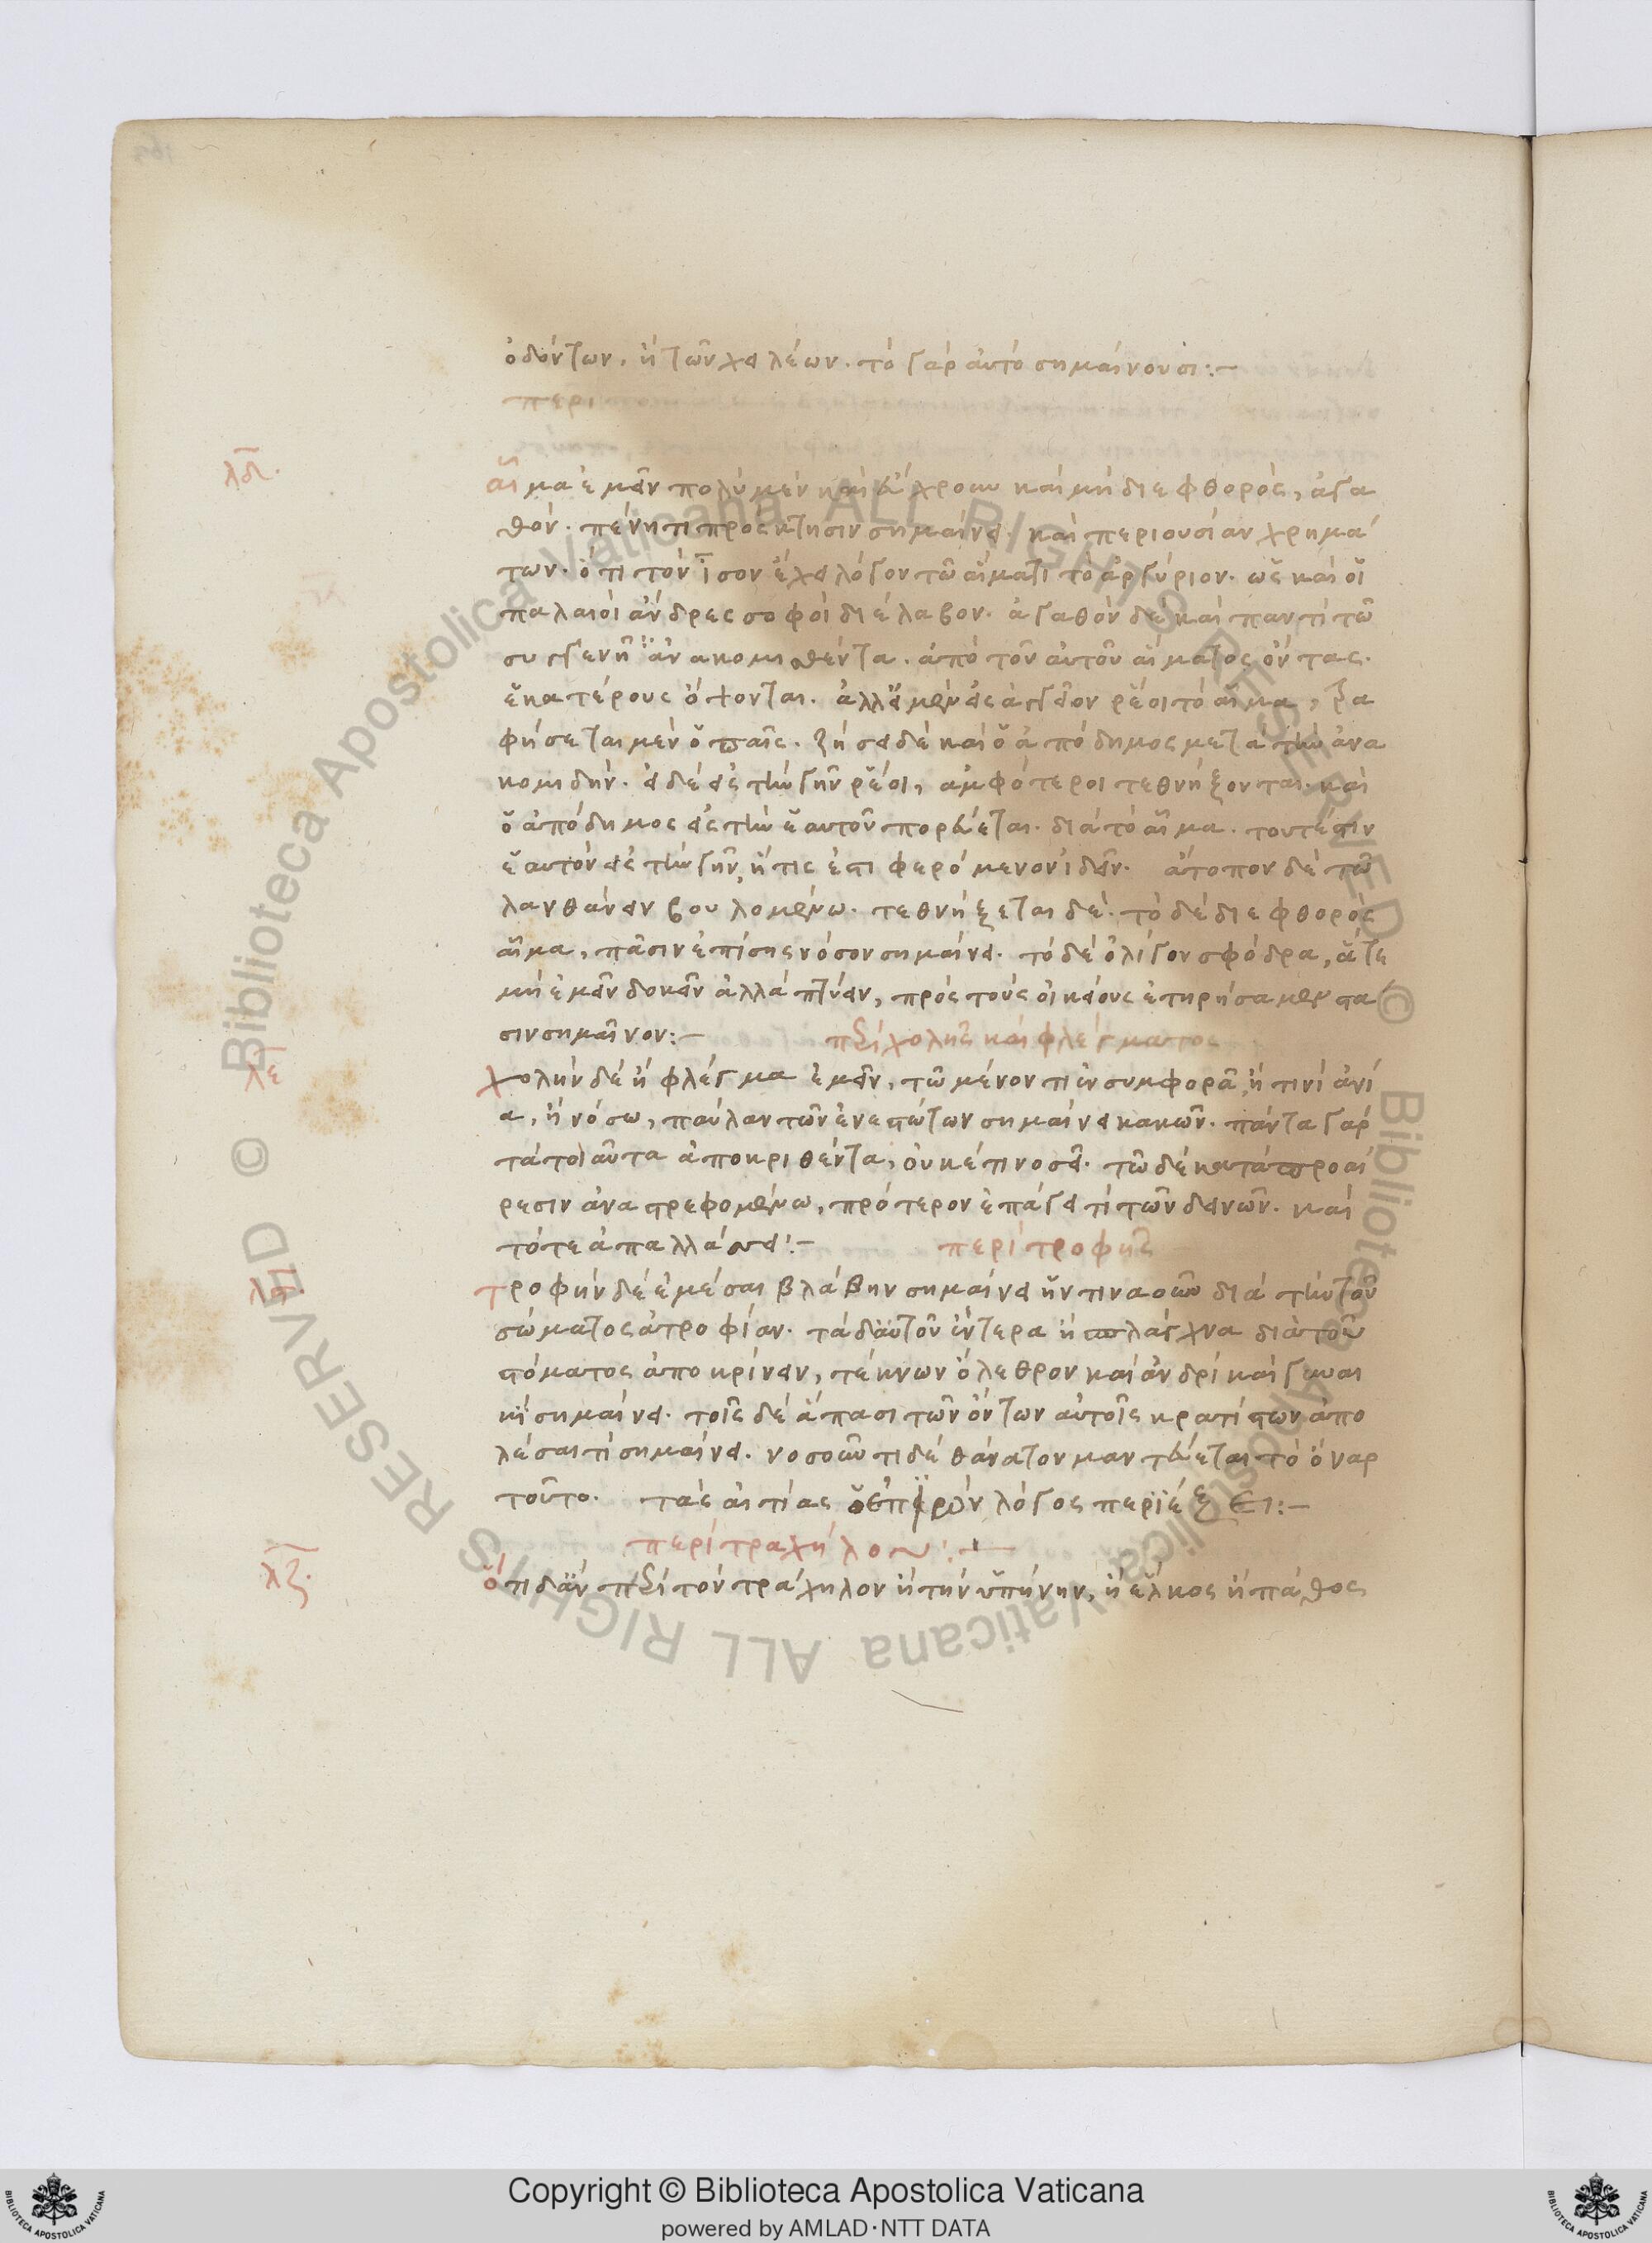 ὀδόντων. ἢ τῶν χειλέων. τὸ γὰρ αὐτὸ σημαίνουσι:~
περι
λδ.
αἷμα ἐμεῖν πολὺ μὲν καὶ εὔχρουν καὶ μὴ διεφθορὸς, ἀγα
θὸν. πένητι πρὸς κτῆσιν σημαίνει. καὶ περιουσίαν χρημά
των. ὅτι τὸν ἴσον ἔχει λόγον τῶ αἵματι τὸ ἀργύριον. ὡς καὶ οἱ
παλαιοὶ ἄνδρες σοφοὶ διέλαβον. ἀγαθὸν δὲ καὶ παντὶ τῶ
συγγενῆ ἀνακομισθέντα. ἀπὸ τοῦ αὐτοῦ αἵματος ὄντας.
ἑκατέρους ὄψονται. ἀλλ' εἰ μὲν εἰς ἀγγεῖον ρέοι τὸ αἷμα, τρα
φήσεται μὲν ὁ παῖς. ζήσει δὲ καὶ ὁ ἀπόδημος μετὰ τὴν ἀνα
κομιδήν. εἰ δὲ εἰς τὴν γῆν ρέοι, ἀμφότεροι τεθνήξονται. καὶ
ὁ ἀπόδημος εἰς τὴν ἑαυτοῦ πορεύεται. διὰ τὸ αἷμα. τουτέστιν
ἑαυτὸν εἰς τὴν γῆν, ἥτις ἐστι φερόμενον ἰδεῖν. ἄτοπον δὲ τῶ
λανθάνειν βουλομένω. τεθνήξεται δὲ. τὸ δὲ διεφθορὸς
αἷμα, πᾶσιν ἐπίσης νόσον σημαίνει. τὸ δὲ ὀλίγον σφόδρα, ἅτε
μὴ ἐμεῖν δοκεῖν ἀλλὰ πτύειν, πρὸς τοὺς οἰκείους ἐτηρήσαμεν στά
σιν σημαῖνον:~ περὶ χολῆς καὶ φλέγματος
λε
χολὴν δὲ ἢ φλέγμα ἐμεῖν, τῶ μένοντι ἐν συμφορᾶ, ἢ τινὶ ἀνί
α, ἢ νόσω, παῦλαν τῶν ἐνεστώτων σημαίνει κακῶν. πάντα γὰρ
τὰ τοιαῦτα ἀποκριθέντα, οὐκέτι νοσεῖ. τῶ δὲ κατὰ προαί
ρεσιν ἀναστρεφομένω, πρότερον ἐπάγει τὶ τῶν δεινῶν. καὶ
τότε ἀπαλλάσσει:~ περὶ τροφῆς
λς.
τροφὴν δὲ ἐμέσαι βλάβην σημαίνει ἥντιναοῦν διὰ τὴν τοῦ
σώματος ἀτροφίαν. τὰ δ' αὑτοῦ ἔντερα ἢ σπλάγχνα διὰ τοῦ
στόματος ἀποκρίνειν, τέκνων ὄλεθρον καὶ ἀνδρὶ καὶ γυναι
κὶ σημαίνει. τοῖς δὲ ἄπασι τῶν ὄντων αὐτοῖς κρατίστων ἀπο
λέσαι τὶ σημαίνει. νοσοῦντι δὲ θάνατον μαντεύεται τὸ ὄναρ
τοῦτο. τὰς αἰτίας ὁ ἐπιὼν λόγος περιέξει:~
περὶ τραχήλου:~
λζ.
ὅτι δ' ἂν περὶ τὸν τράχηλον ἢ τὴν ὑπήνην, ἢ ἕλκος ἢ πάθος
Copyright © Biblioteca Apostolica Vaticana
powered by AMLAD·NTT DATA